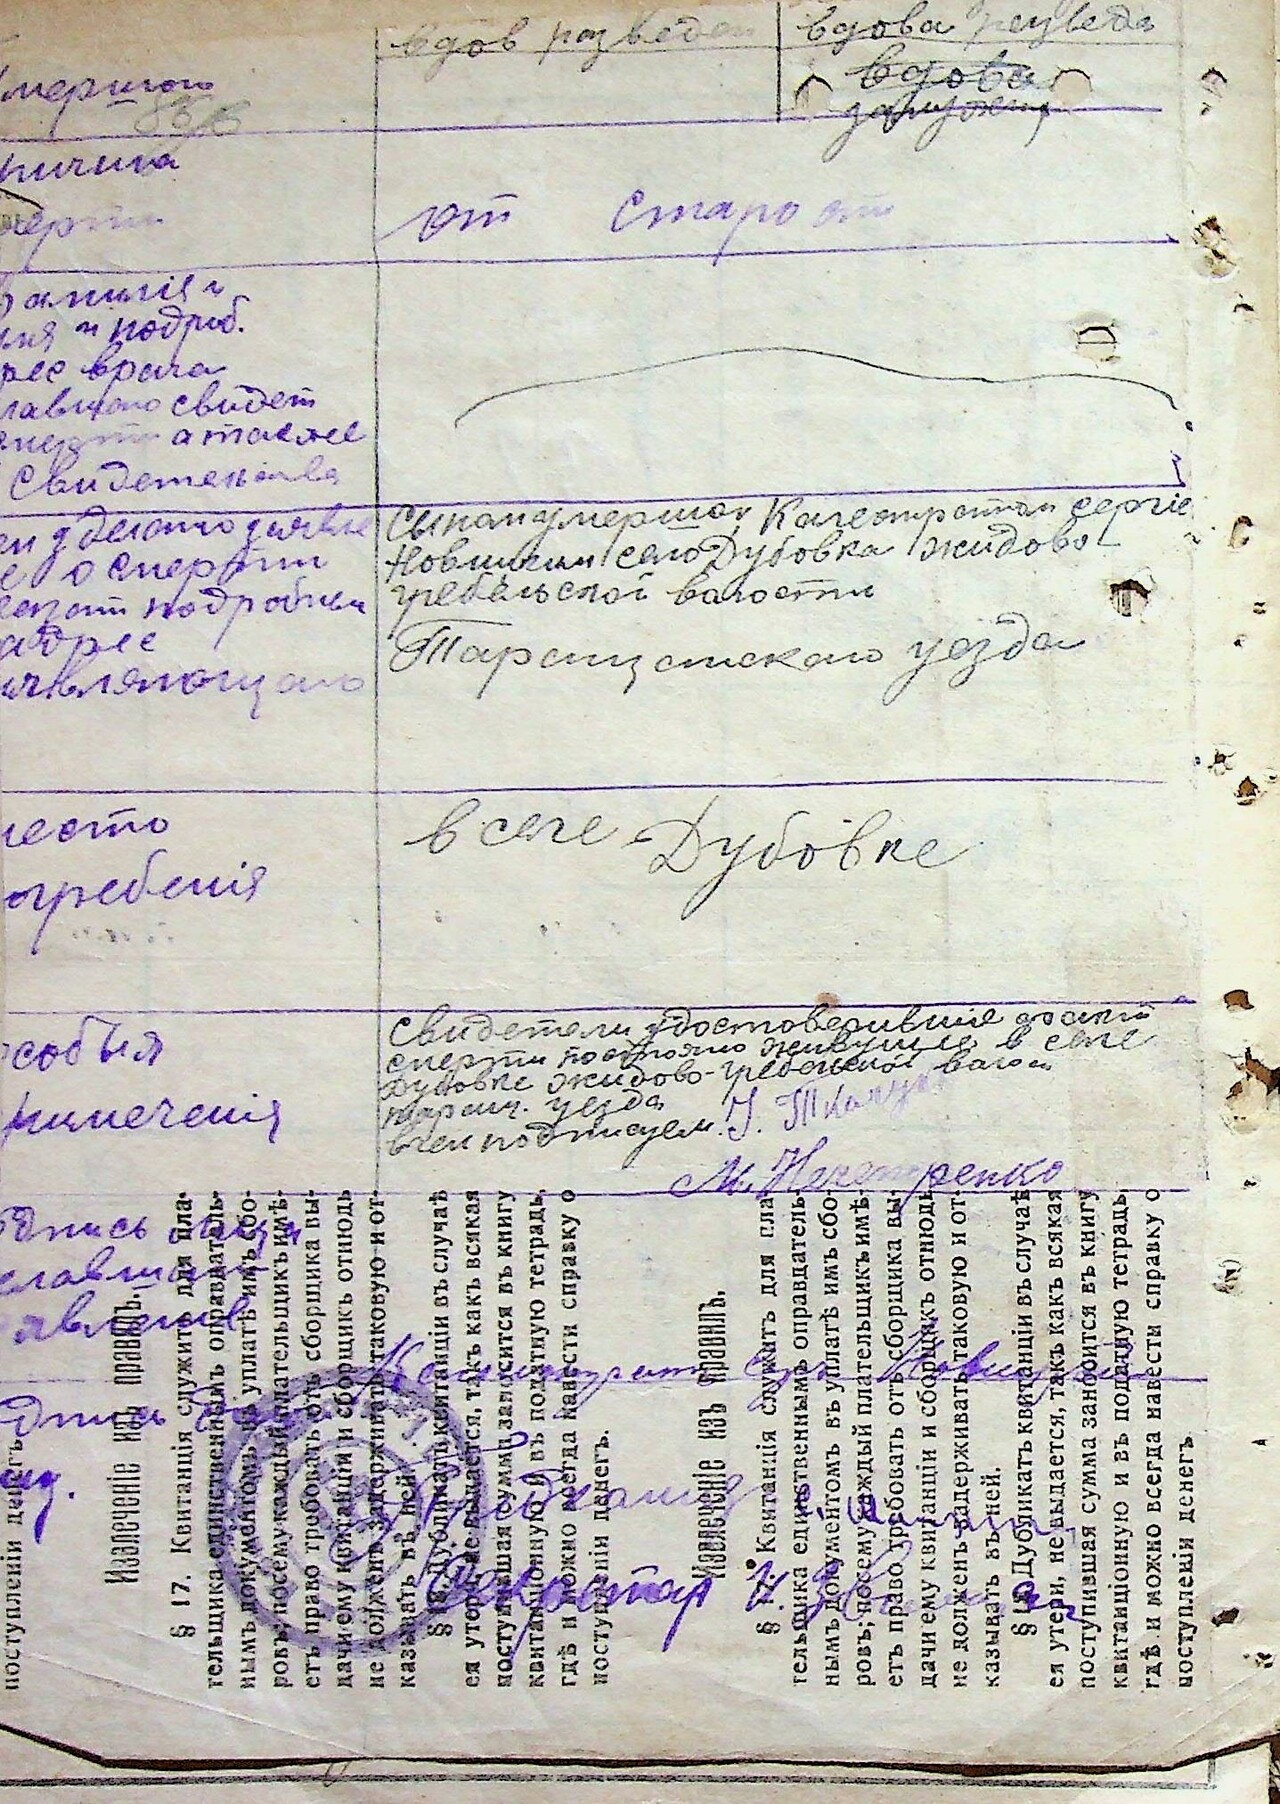 вдов разведен
вдова разведе
мершого
вдова
замужем
ричина
мерти
от старости
амилія и
мя и подроб.
рес врача
давшого свидет
а также
свидетельства
о смерти
подробный
адрес
заявляющаго
Сыном умершой Калестратом Сергіе
Новицким село Дубовка Жидово
гребельской волости
Таращанского уезда
место
огребенія
в селе Дубовке
особыя
римеченія
Свидетели удостоверившие факт
смерти постояно живущие в селе
Дубовке Жидово-гребельской волос
таращ. уезда
в чем подписуем.
М. Нечепуренко
одпись лица
елавшаго
аявление
Секретар
поступленіи денегъ.
Извлеченіе изъ правилъ.
§ 17. Квитанція служитъ для пла-
тельщика единственнымъ оправдатель-
нымъ документомъ въ уплатѣ имъ сбо-
ровъ; посему каждый плательщикъ имѣ-
етъ право требовать отъ сборщика вы-
дачи ему квитанціи и сборщикъ отнюдь
не долженъ задерживать таковую и от-
казывать въ ней.
§ 18. Дубликатъ квитанціи въ случаѣ
ея утери, не выдается, такъ какъ всякая
поступившая сумма заносится въ книгу
квитанціонную и въ податную тетрадь,
гдѣ и можно всегда навести справку о
поступленіи денегъ.
Извлеченіе изъ правилъ.
§ 17. Квитанція служитъ для пла-
тельщика единственнымъ оправдатель-
нымъ документомъ въ уплатѣ имъ сбо-
ровъ; посему каждый плательщикъ имѣ-
етъ право требовать отъ сборщика вы-
дачи ему квитанціи и сборщикъ отнюдь
не долженъ задерживать таковую и от-
казывать въ ней.
§ 18. Дубликатъ квитанціи въ случаѣ
ея утери, не выдается, такъ какъ всякая
поступившая сумма заносится въ книгу
квитанціонную и въ податную тетрадь,
гдѣ и можно всегда навести справку о
поступленіи денегъ.